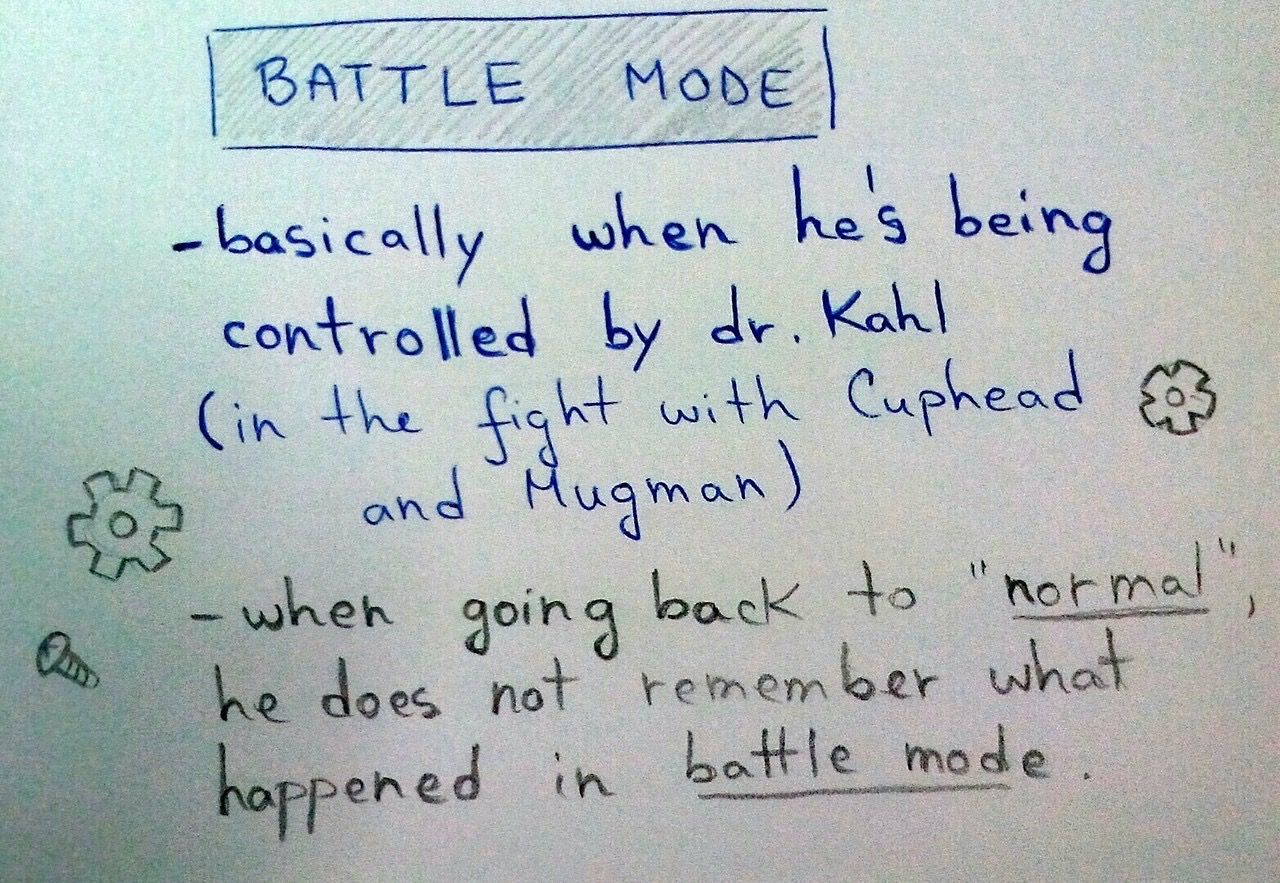 BATTLE MODE
-basically when he's being
controlled by dr. Kahl
(in the fight with Cuphead
and Mugman)
-when going back to "normal",
he does not remember what
happened in battle mode.